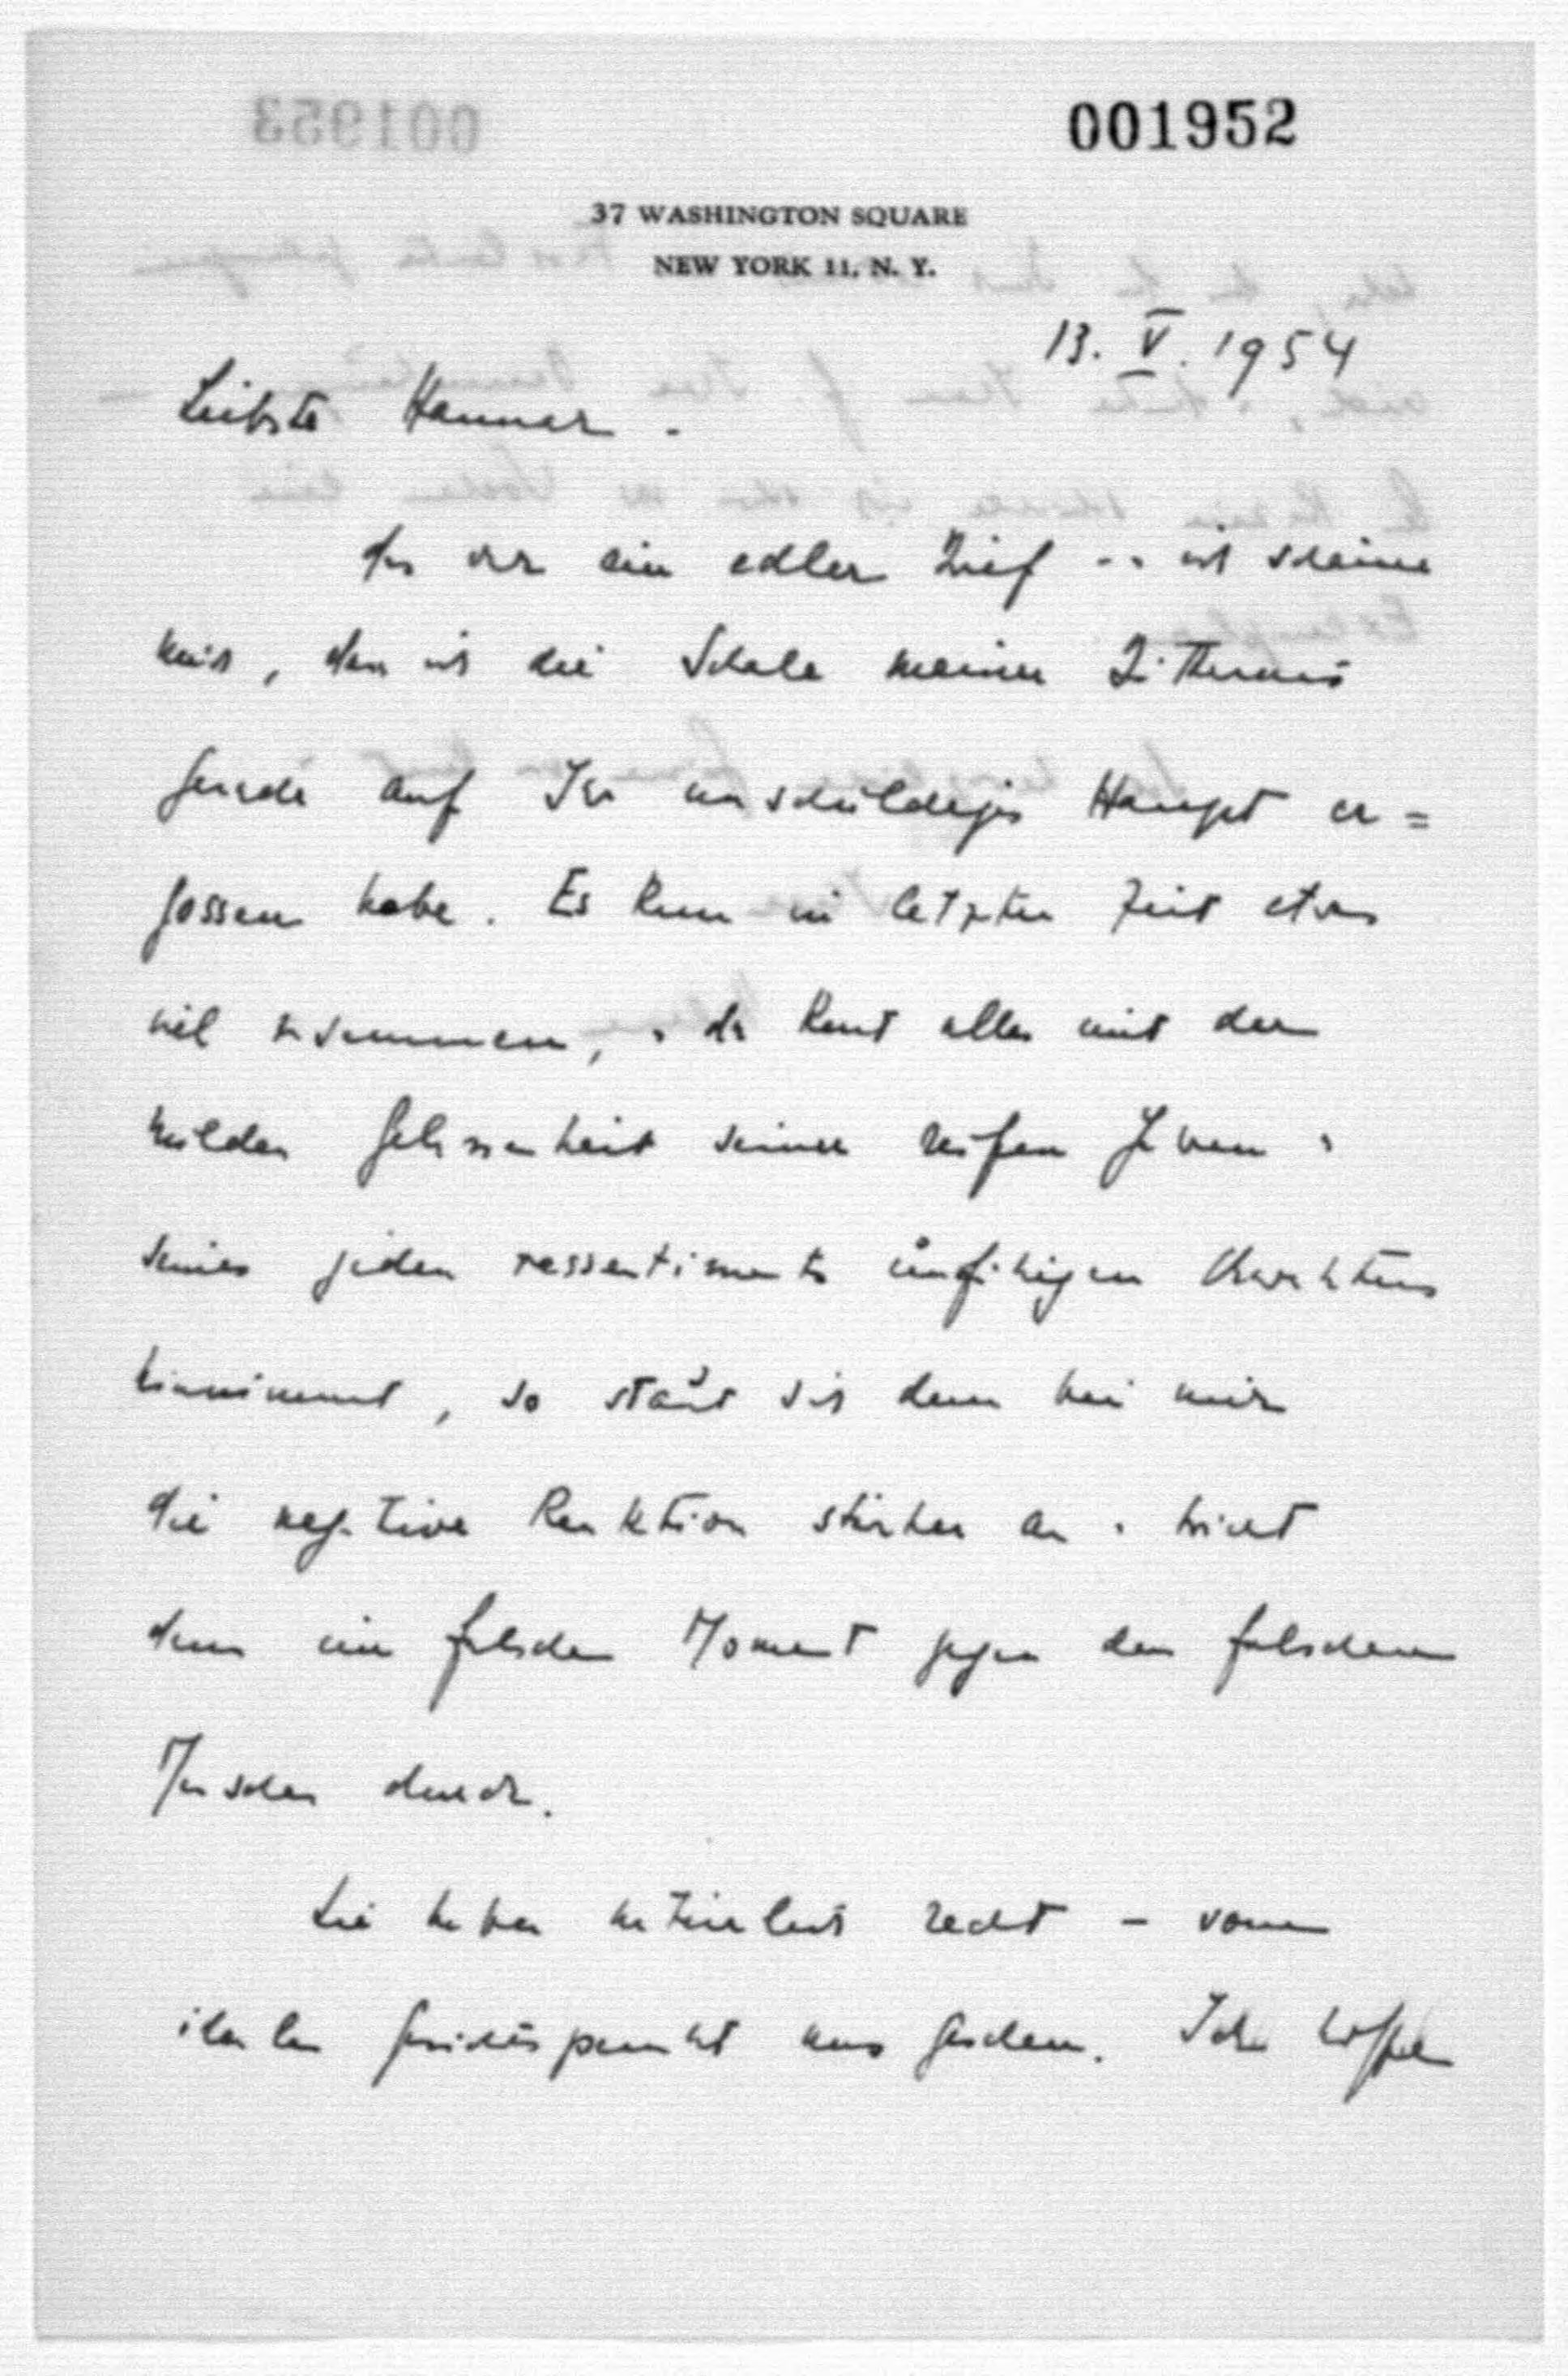 001952
37 WASHINGTON SQUARE
NEW YORK 11, N. Y.
13. V. 1954
Liebste Hannah.
das war ein edler Brief -- ich schäme
mich, dass ich die Schale meiner
gerade auf Ihr unschuldiges Haupt er=
gossen habe. Es kam in letzter Zeit etwas
viel zusammen, da man alles mit der
milden Gelassenheit seiner reifen Jahre u
seines jeden ressentiments unfähigen Charakters
hinnimmt, so staut sich dann bei mir
die negative Reaktion stärker an u bricht
dann im falschen Moment gegen den falschen
Menschen durch.
Sie haben natürlich recht - vom
idealen Gesichtspunkt aus gesehen. Ich hoffe